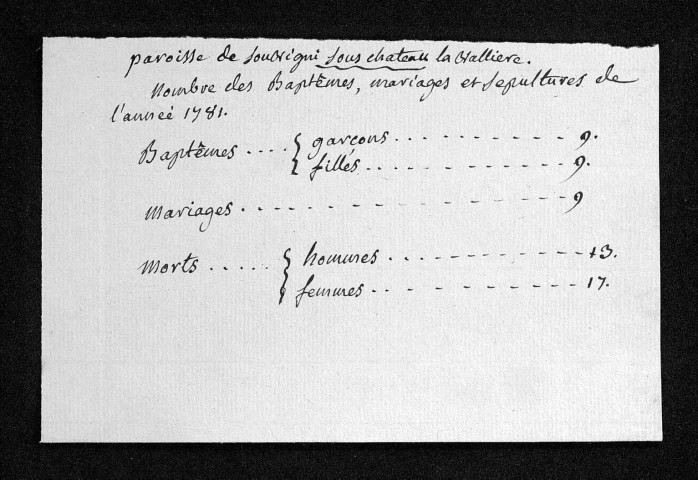 paroisse de souvigni sous chateau la valliere.
Nombre des Baptêmes, mariages et sepultures de
l'anneé 1781.
Baptêmes .... { garcons ........ 9.
fillés ........ 9.
mariages ........ 9
morts ..... { hommes ........ 13.
femmes ........ 17.